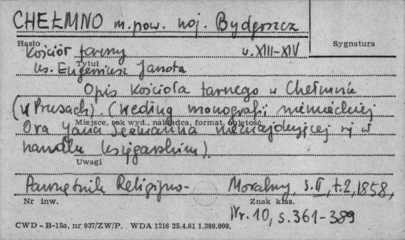 CHEŁMNO m. pow. woj. Bydgoszcz
Hasło
Kościół farny w. XIII-XIV
Sygnatura
Tytuł
ks. Eugeniusz Janota
Opis Kościoła farnego w Chełmnie
(w Prusach). (Według monografii niemieckiej
Miejsce, rok wyd., nakładca, format, objętość
Dra Jana nieznajdującej się w
handlu księgarskim).
Uwagi
Pamiętnik Religijno- Moralny, s. II, t. 2, 1858,
Nr inw. Znak klas.
Nr. 10, s. 361-389
CWD - B-15a, nr 937/ZW/P. WDA 1216 25.4.61 1.280.000.